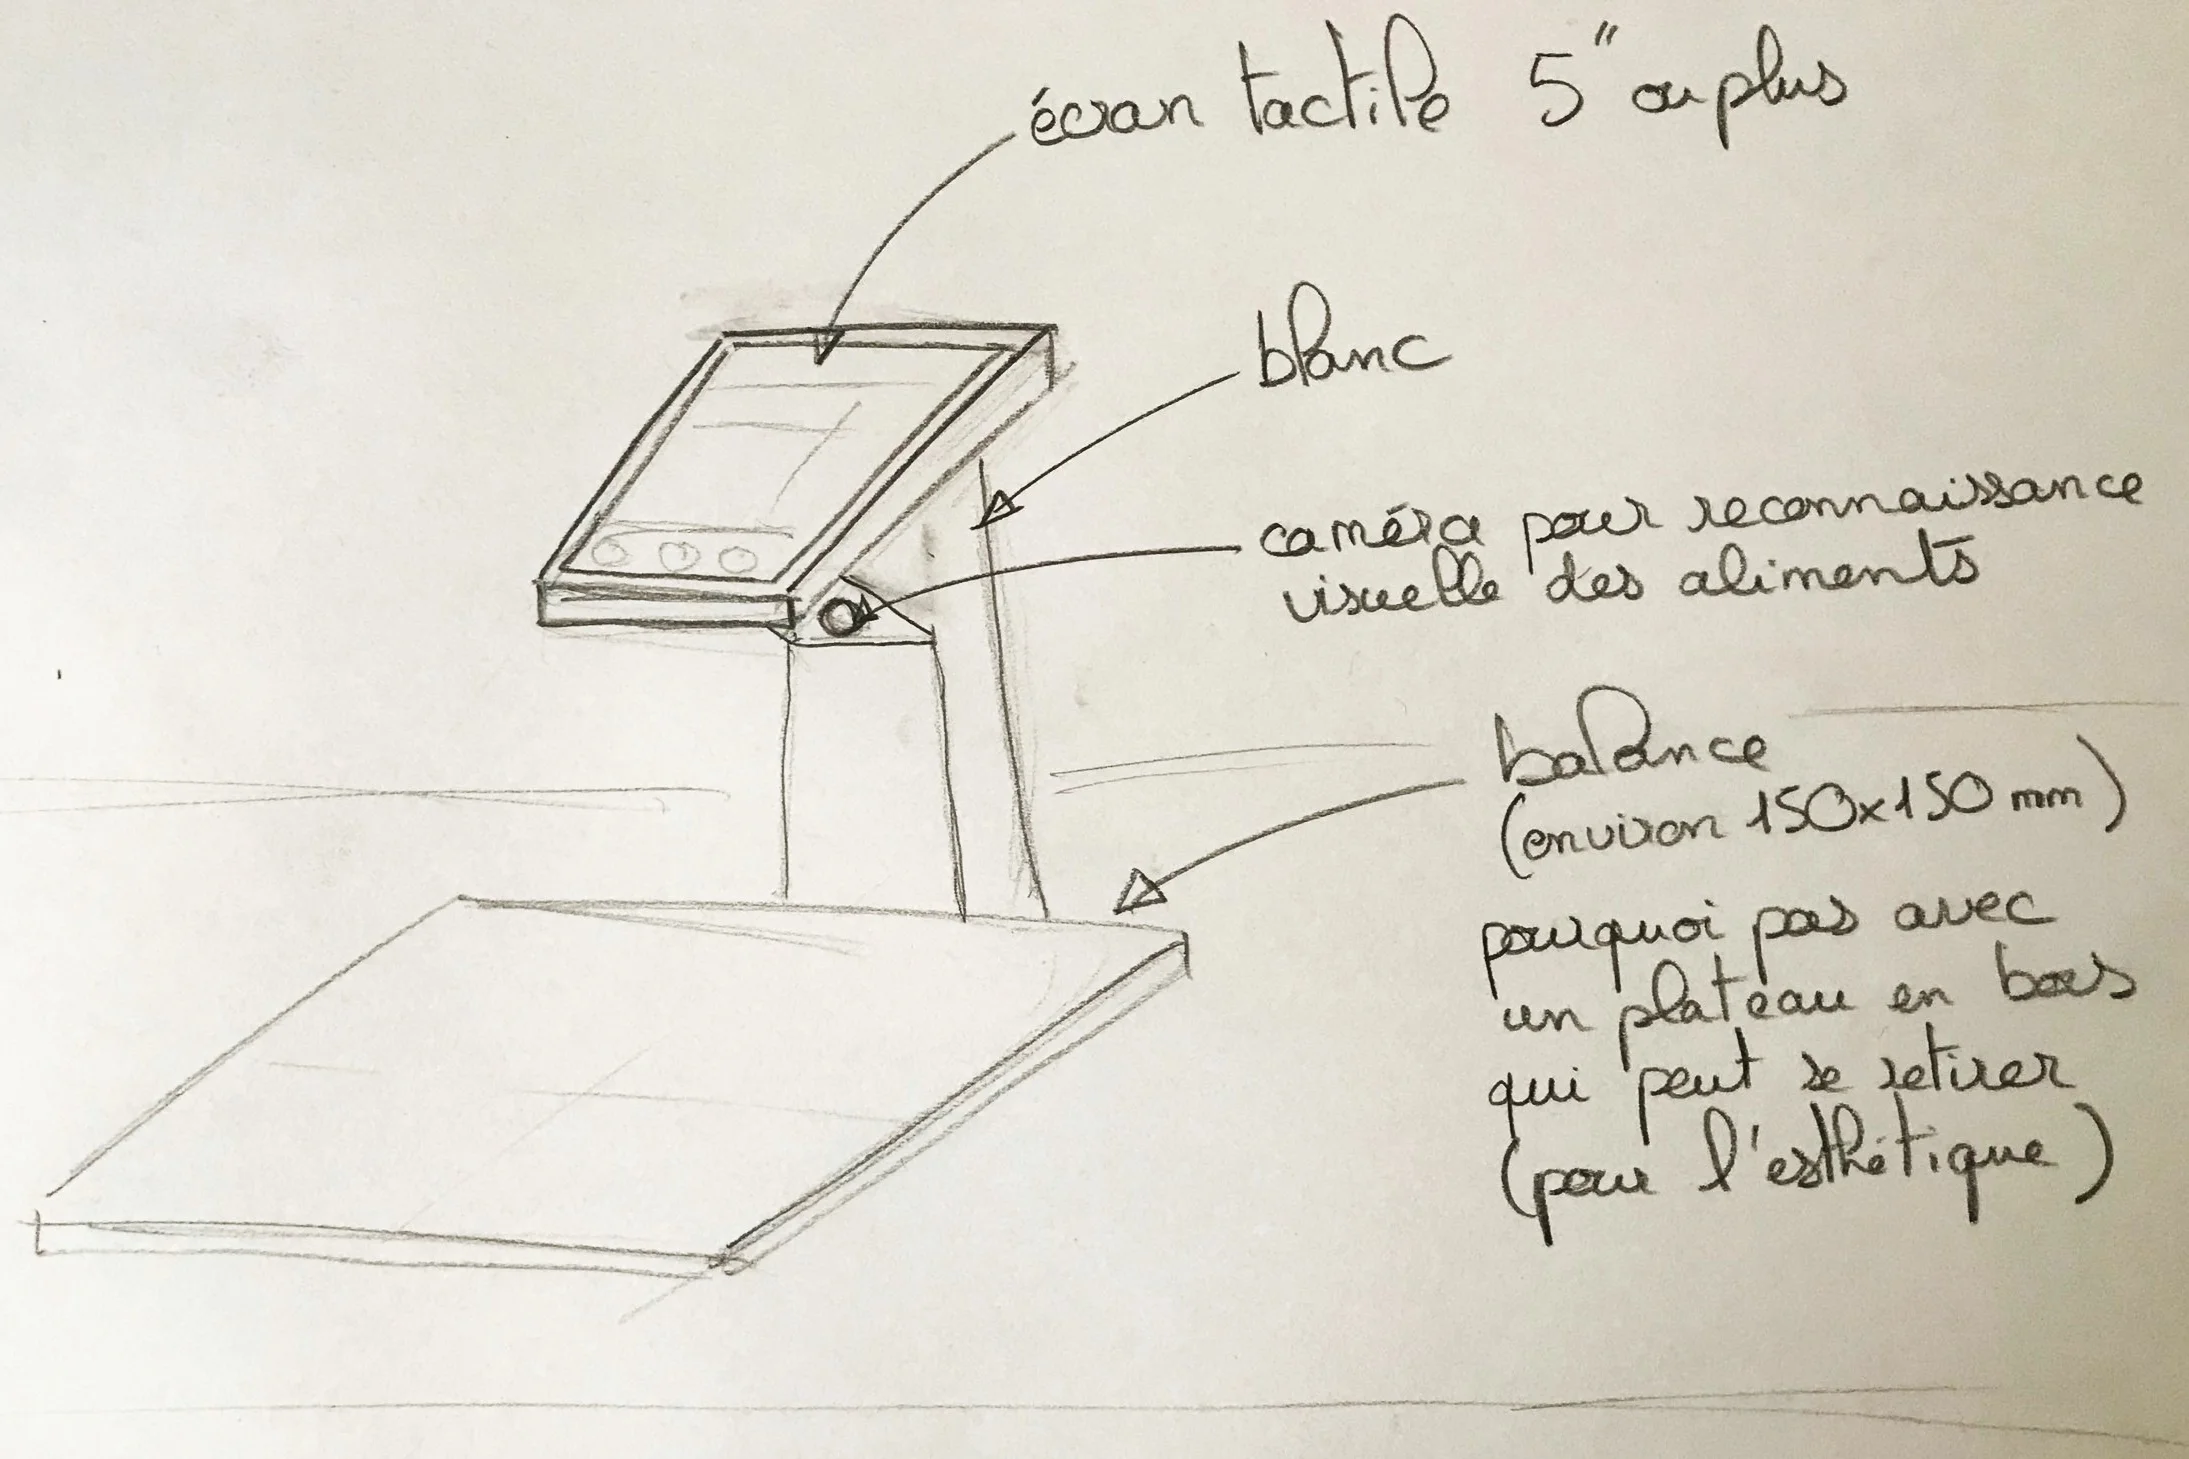 écran tactile 5" ou plus
blanc
caméra pour reconnaissance
visuelle des aliments
balance
(environ 150x150 mm)
pourquoi pas avec
un plateau en bois
qui peut se retirer
(pour l'esthétique)